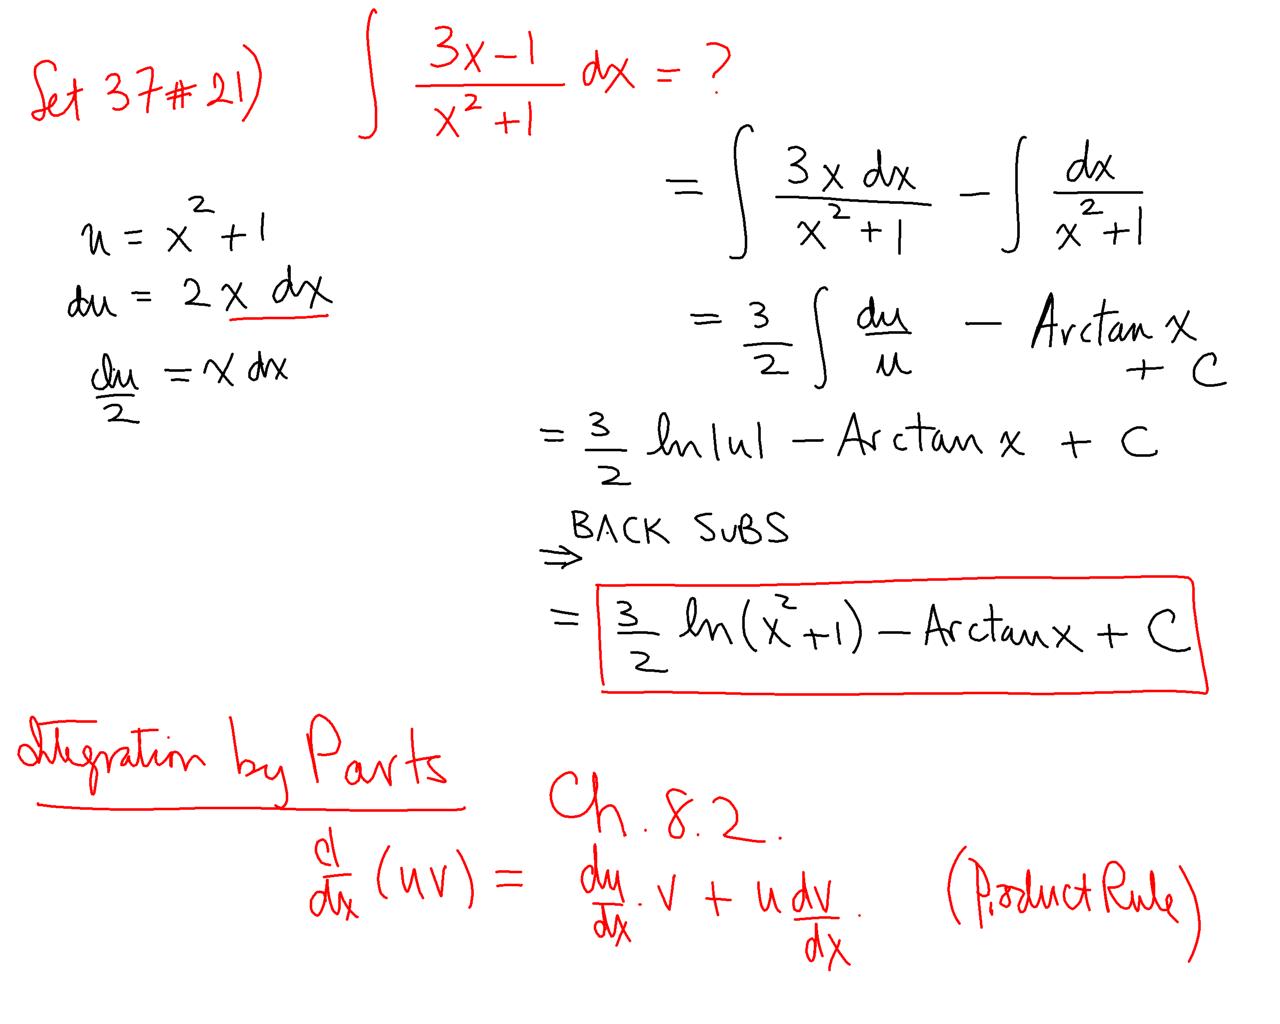 Set 37 # 21) ∫ (3x-1)/(x²+1) dx = ?
= ∫ (3x dx)/(x²+1) - ∫ dx/(x²+1)
u = x²+1
du = 2x dx
du/2 = x dx
= 3/2 ∫ du/u - Arctan x + C
= 3/2 ln|u| - Arctan x + C
⇒ BACK SUBS
= 3/2 ln(x²+1) - Arctan x + C
Integration by Parts
Ch. 8.2.
d/dx (uv) = du/dx · v + u dv/dx. (Product Rule)